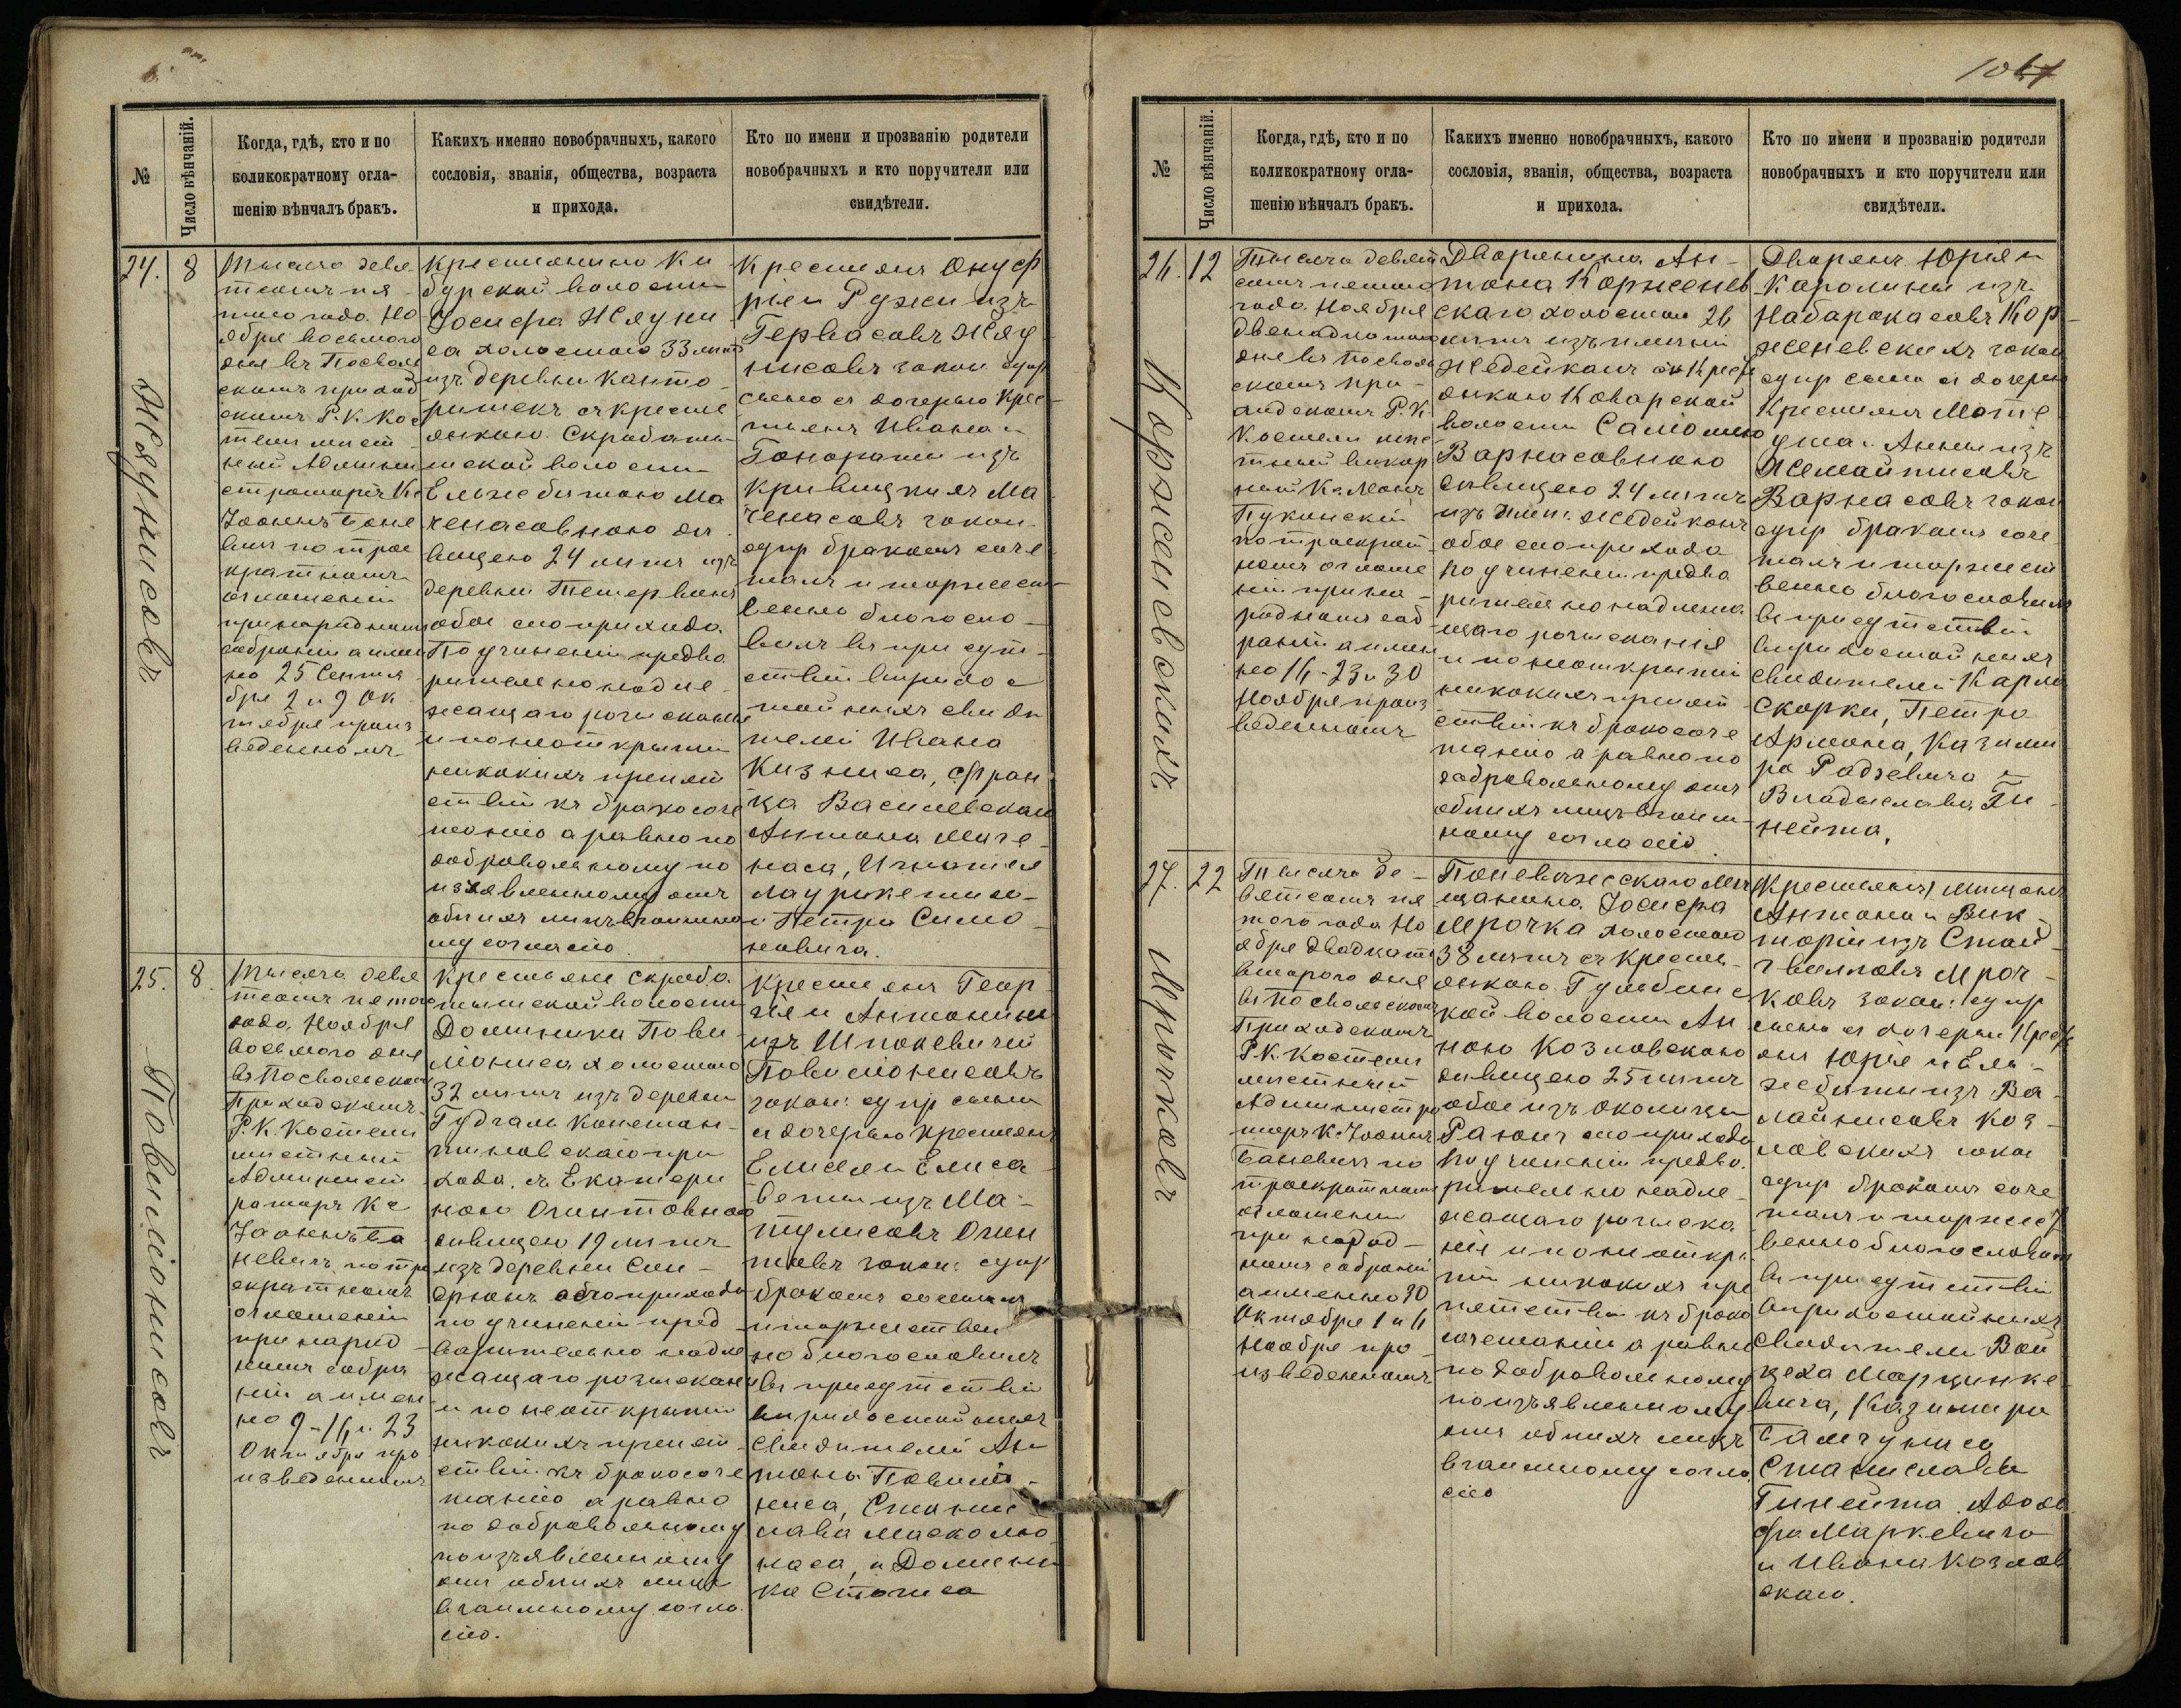 1061
№
Число вѣнчаній.
Когда, гдѣ, кто и по
коликократному огла-
шенію вѣнчалъ бракъ.
Какихъ именно новобрачныхъ, какого
сословія, званія, общества, возраста
и прихода.
Кто по имени и прозванію родители
новобрачныхъ и кто поручители или
свидѣтели.
24.
8
Жяунисовъ
Тысяча девя
тсотъ пя-
таго года Но
ября восьмого
дня въ Посволь
скомъ приход
скомъ Р. К. Кос
телѣ мѣст
ный Админи
страторъ Кс
Іоаннъ Бане
вичъ по трое
кратномъ
оглашеніи
при народномъ
собраніи а имен
но 25 Сентя
бря 2 и 9 Ок
тября произ
веденномъ
Крестьянина Ки
бурской волости
Іосифа Жяуни
са холостого 33 лѣтъ
изъ деревни Канто
ришекъ съ кресть
янкою Скробаты
шской волости
Ельжбѣтою Ма
ченасовною дѣ
вицею 24 лѣтъ изъ
деревни Тетервины
обое сего прихода
По учиненіи предва
рительно надле
жащаго розысканія
и по неоткрытіи
никакихъ препят
ствій къ бракосоче
танію а равно по
добровольному по
изъявленному отъ
обѣихъ лицъ взаимно
му согласію.
Крестьянъ Онуф
рія и Рузи изъ
Гервасовъ Жяу
нисовъ закон супр
сына съ дочерью Крес
тьянъ Ивана и
Гонораты изъ
Кривицкихъ Ма
ченасовъ закон.
супр бракомъ соче
талъ и торжест
венно благосло-
вилъ въ присут-
ствіи вѣридос
тойныхъ свидѣ
телей Ивана
Кизниса, Фран
ца Василевскаго
Антона Маче
наса, Игнатія
Лаурикениса
и Петра Симо
новича.
25.
8.
Повилюнисовъ
Тысяча девя
тсотъ пятаго
года Ноября
восьмого дня
въ Посвольскомъ
Приходскомъ
Р. К. Костелѣ
мѣстный
Админист
раторъ Кс
Іоаннъ Ба
невичъ по трое
кратномъ
оглашеніи
при народ
номъ собра
ніи а имен
но 9-16 и 23
Октября про
изведенномъ
Крестьяне Скробо
тышской волости
Доминика Пови
люниса холостого
32 лѣтъ изъ деревни
Гудгаль
при
хода, съ Екатери
ною Огинтовною
дѣвицею 19 лѣтъ
изъ деревни
сего прихода
по учиненіи пред
варительно надле
жащаго розысканія
и по неоткрытіи
никакихъ препят
ствій къ бракосоче
танію а равно
по добровольному
по изъявленному
отъ обѣихъ лицъ
взаимному согла
сію.
Крестьянъ Геор
гія и Антонины
изъ Шпокевичей
Повилюнисовъ
закон: супр сына
съ дочерью крестьянъ
Елисея и Елиса
веты изъ Ма-
тулисовъ Огин
товъ закон: супр
бракомъ сочеталъ
и торжествен
но благословилъ
въ присутствіи
вѣридостойныхъ
Свидѣтелей Ан
тона Повилю-
ниса, Станис
лава Масколю
наса, и Домини
ка
№
Число вѣнчаній.
Когда, гдѣ, кто и по
коликократному огла-
шенію вѣнчалъ бракъ.
Какихъ именно новобрачныхъ, какого
сословія, званія, общества, возраста
и прихода.
Кто по имени и прозванію родители
новобрачныхъ и кто поручители или
свидѣтели.
26.
12
Корженевскихъ
Тысяча девят
сотъ пятаго
года Ноября
двенадцатаго
дня въ Посволь
скомъ при-
ходскомъ Р. К.
Костелѣ мѣс
тный викар
ный Кс Іоаннъ
Пуконскій
по троекрат
номъ оглаше
ніи при на-
родномъ соб
раніи а имен
но 16-23 и 30
Ноября произ
веденномъ
Дворянина Ан-
тона Корженев
скаго холостого 26
лѣтъ изъ имѣній
Жедейканъ съ Кресть
янкою Коварской
волости Саломею
Варнасовною
дѣвицею 24 лѣтъ
изъ имѣн: Жедейканъ
обое сего прихода
по учиненіи предва
рительно надлежа
щаго розысканія
и по неоткрытіи
никакихъ препят
ствій къ бракосоче
танію а равно по
добровольному отъ
обѣихъ лицъ взаим-
ному согласію
Дворянъ Юрія и
Каролины изъ
Набарокасовъ Кор
женевскихъ закон
супр сына съ дочерью
Крестьянъ Моте
уша и Анны изъ
Жемайтисовъ
Варнасовъ закон
супр бракомъ соче
талъ и торжест
венно благословилъ
въ присутствіи
вѣридостойныхъ
свидѣтелей Карла
Скорки, Петра
Армона, Казими
ра Радзевича и
Владислава Ги
нейта.
27.
22
Мрочковъ
Тысяча де-
вятсотъ пя
таго года Но
ября двадцать
второго дня
въ Посвольскомъ
Приходскомъ
Р. К. Костелѣ
мѣстный
Администра
торъ Кс Іоаннъ
Баневичъ по
троекратномъ
оглашеніи
при народ-
номъ собраніи
а именно 30
Октября 1 и 6
Ноября про
изведенномъ
Поневѣжскаго Мѣ
щанина Іосифа
Мрочка холостого
38 лѣтъ съ Кресть
янкою Гумбинс
кой волости Ан
ною Козловскою
дѣвицею 25 лѣтъ
обое изъ околицы
Раюнъ сего прихода
По учиненіи предва
рительно надле
жащаго розыска
нія и по неоткры
тіи никакихъ пре
пятствій къ брако
сочетанію а равно
по добровольному
по изъявленному
отъ обѣихъ лицъ
взаимному согла
сію
(Крестьянъ) мѣщанъ
Антона и Вик-
торіи изъ Стай-
гвилловъ Мроч-
ковъ закон: супр
сына съ дочерью Кресть
янъ Юрія и Ель-
жбѣты изъ Ва-
лайнисовъ Коз-
ловскихъ закон
супр бракомъ соче
талъ и торжест
венно благословилъ
въ присутствіи
вѣридостойныхъ
Свидѣтелей Вой
цеха Марцинке
вича, Казимира
Бамчуниса
Станислава
Гинейта Адоль
фа Маркевича
и Ивана Козлов
скаго.